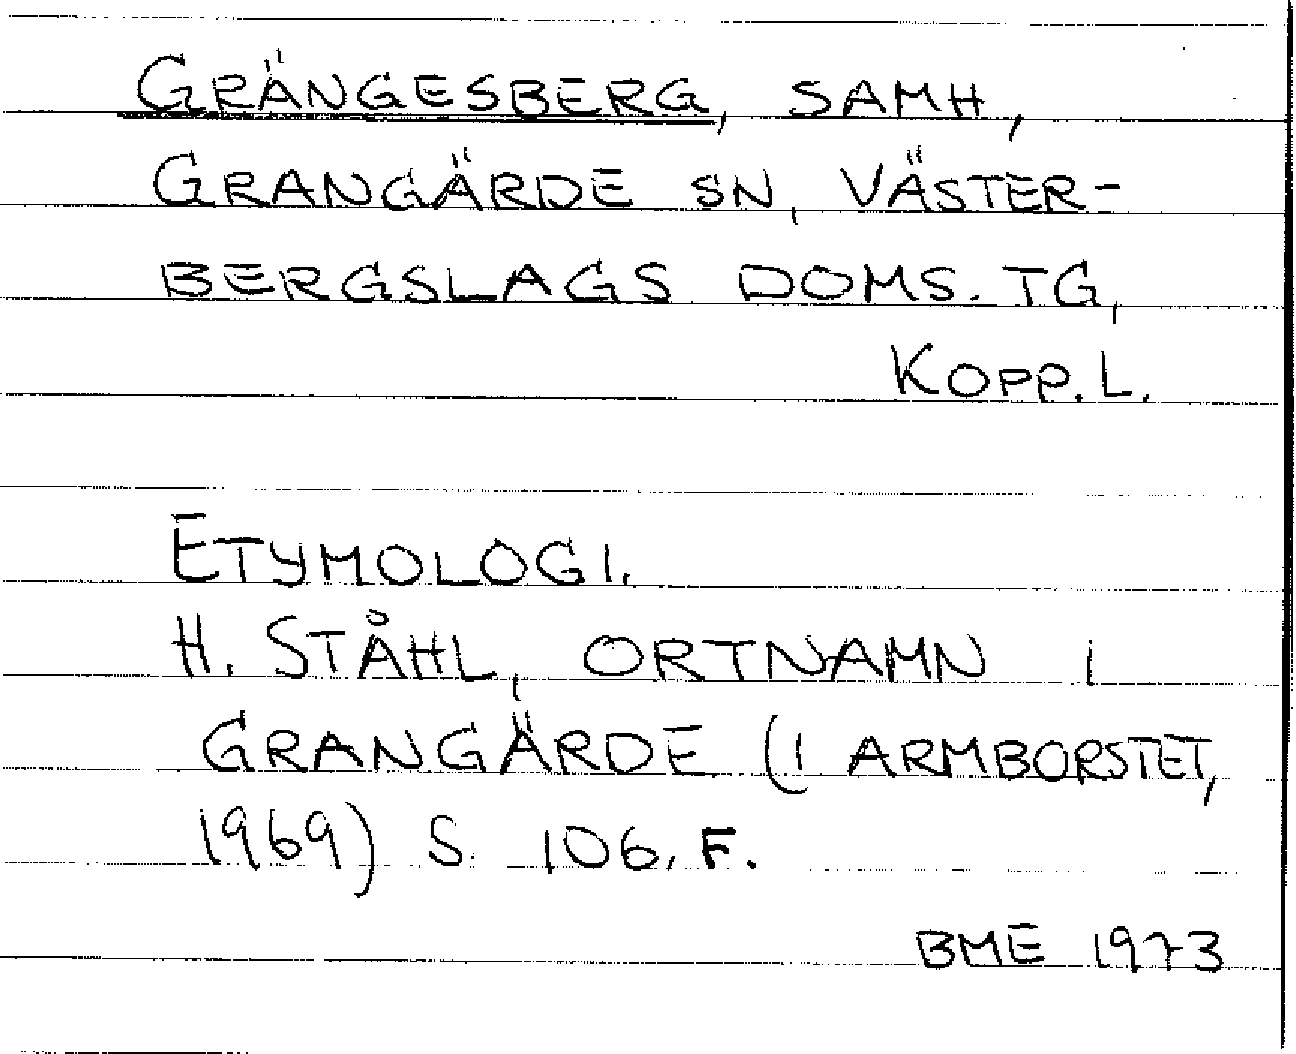 GRÄNGESBERG, SAMH,
GRANGÄRDE SN, VÄSTER-
BERGSLAGS DOMS. TG,
KOPP. L.
ETYMOLOGI.
H. STÅHL, ORTNAMN I
GRANGÄRDE (I ARMBORSTET,
1969) S. 106. F.
BME 1973